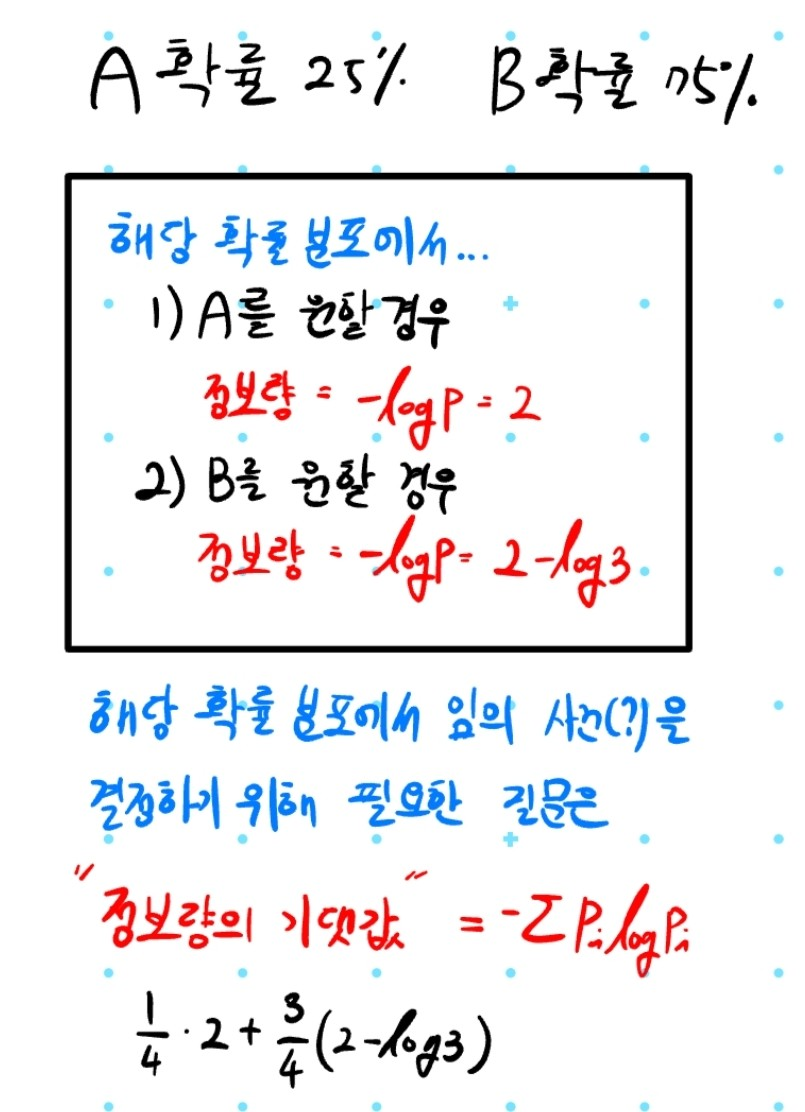 A 확률 25% B 확률 75%
해당 확률 분포에서...
1) A를 원할 경우
정보량 = -log P = 2
2) B를 원할 경우
정보량 = -log P = 2 - log 3
해당 확률 분포에서 임의 사건(?)을
결정하기 위해 필요한 질문은
"정보량의 기댓값" = -Σ Pᵢ log Pᵢ
1/4 · 2 + 3/4 (2 - log 3)